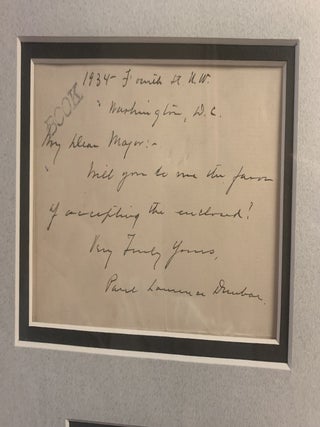 1934 - Fourth St N.W.
Washington, D.C.
BOOK
My Dear Major:-
Will you do me the favor
of accepting the enclosed?
Very Truly Yours,
Paul Laurence Dunbar.